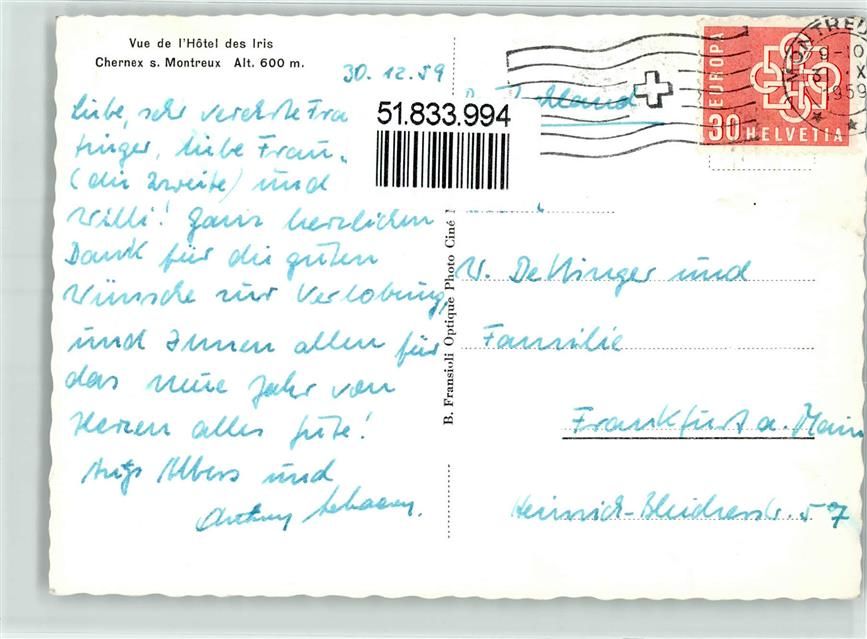 Vue de l'Hôtel des Iris
Chernex s. Montreux Alt. 600 m.
30.12.59
Liebe, sehr verehrte Frau
liebe Frau
(die zweite) und
Willi! Ganz herzlichen
Dank für die guten
Wünsche zur Verlobung,
und Ihnen allen für
das neue Jahr von
Herzen alles Gute!
Albers und
51.833.994
B. Fransioli Optique Photo Ciné
EUROPA
30 HELVETIA
MONTREUX
1959
W. Dettinger und
Familie
Frankfurt a. Main
Heinrich-Bleicherstr. 57